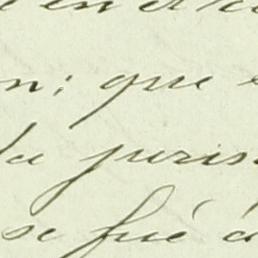 en el
n; que
la juris
se fué á